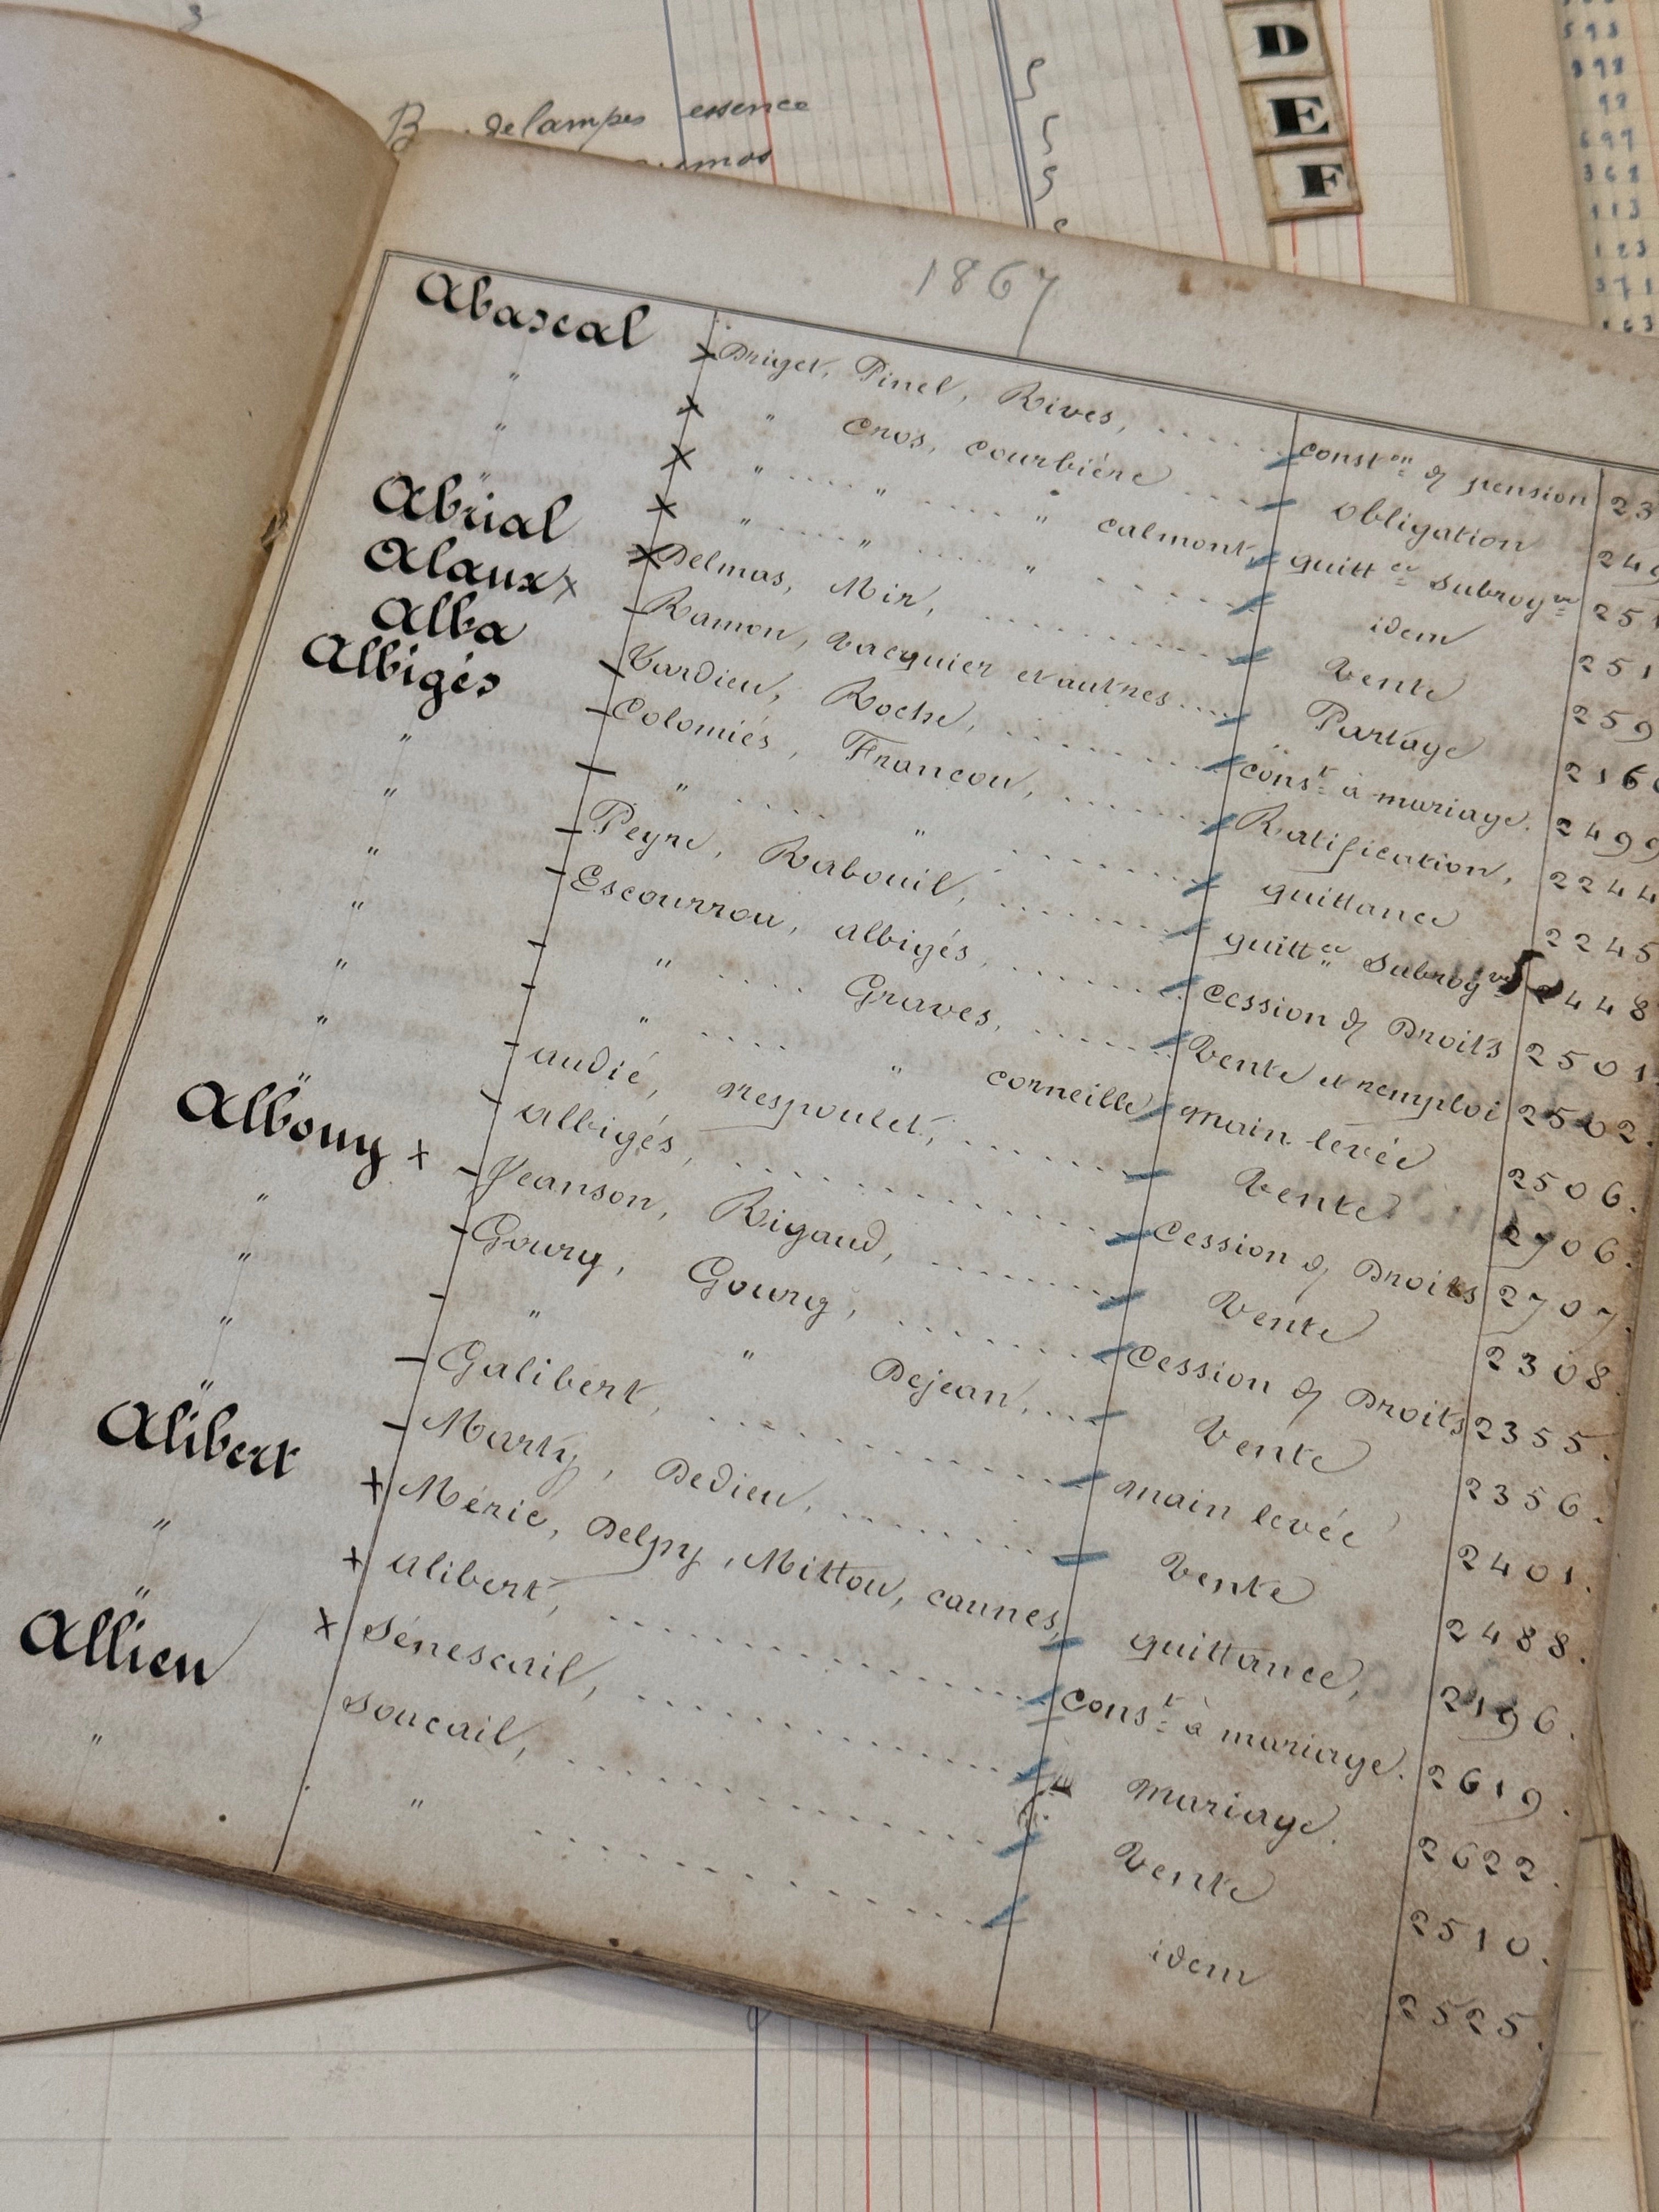 B delampes essence
D
E
F
1867
Abascal Driget, Pinel, Rives, const.on de pension 23
" " Cros, Courbière obligation 249
" " " " Calmont, quitt.ce Subrog.ve 251
" " " " idem 251
Abrial Delmas, Mir, Vente 259
Alaux x Ramon, Vacquier et autres Partage 2160
Alba Tardieu, Roche, cons.t à mariage. 2499
Albigés Colomiés, Francou, Ratification, 2244
" " " quittance 2245
" Peyre, Rabouil, quitt.ce Subrog.ve 2448
" Escourrou, albigés, cession de Droits 2501.
" " Graves, Vente et remploi 2502.
" " " corneille main levée 2506.
" audié, respoulet, Vente 2706.
" albigés, Cession de Droits 2707.
Albouy x Jeanson, Rigaud, Vente 2308.
" Goury, Goury, Cession de Droits 2355.
" " " Dejean, Vente 2356.
" Galibert, main levée 2401.
" Marty, Dedieu, Vente 2488.
Alibert Méric, Delpy, Mittou, caunes, quittance, 2196.
" alibert, Cons.t à mariage. 2619.
" Sénescail, mariage. 2622.
Allien Soucail, Vente 2510.
" " idem 2525.